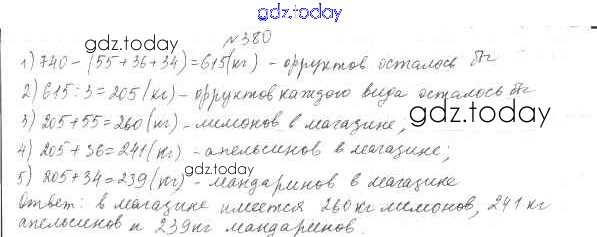 gdz.today
№380
1) 740 - (55+36+34)=615(кг) - фруктов осталось бы
gdz.today
2) 615:3=205 (кг) - фруктов каждого вида осталось бы
3) 205+55=260(кг) - лимонов в магазине;
gdz.today
4) 205+36=241(кг) - апельсинов в магазине;
5) 205+34=239(кг) - мандаринов в магазине
gdz.today
Ответ: в магазине имеется 260кг лимонов, 241 кг
апельсинов и 239кг мандаринов.